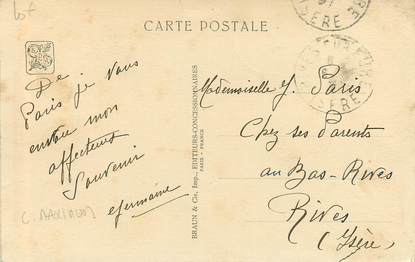 lot
CARTE POSTALE
De
Paris je vous
envoie mon
affectueux
Souvenir
Germaine
C. MAXIMUM
BRAUN & Cie, Imp., EDITEURS-CONCESSIONNAIRES
PARIS - FRANCE
Mademoiselle J. Paris
Chez ses Parents
au Bas-Rives
Rives
(Isère)
ISERE
ISERE